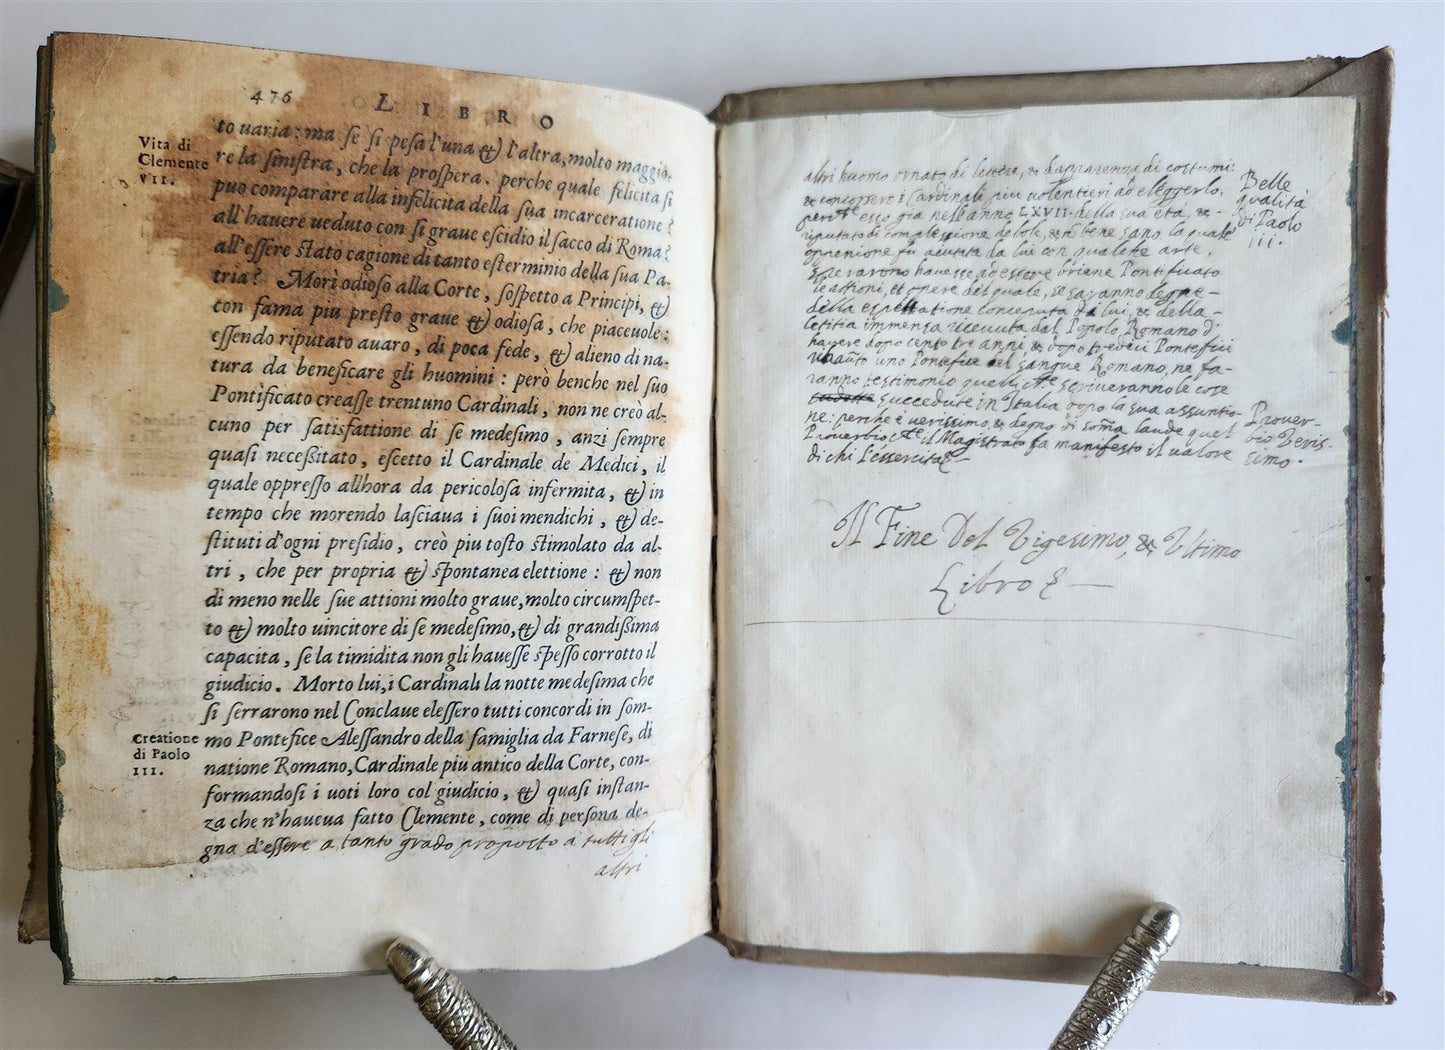 476
LIBRO
Vita di
Clemente
VII.
to uaria: ma se si pesa l'una & l'altra, molto maggio-
re la sinistra, che la prospera. perche quale felicita si
puo comparare alla infelicita della sua incarceratione?
all'hauere ueduto con si graue escidio il sacco di Roma?
all'essere stato cagione di tanto esterminio della sua Pa-
tria? Morì odioso alla Corte, sospetto a Principi, &
con fama piu presto graue & odiosa, che piaceuole:
essendo riputato auaro, di poca fede, & alieno di na-
tura da beneficare gli huomini: però benche nel suo
Pontificato creasse trentuno Cardinali, non ne creò al-
cuno per satisfattione di se medesimo, anzi sempre
quasi necessitato, escetto il Cardinale de Medici, il
quale oppresso allhora da pericolosa infermita, & in
tempo che morendo lasciaua i suoi mendichi, & de-
stituti d'ogni presidio, creò piu tosto stimolato da al-
tri, che per propria & spontanea elettione: & non
di meno nelle sue attioni molto graue, molto circumspet-
to & molto uincitore di se medesimo, & di grandissima
capacita, se la timidita non gli hauesse spesso corrotto il
giudicio. Morto lui, i Cardinali la notte medesima che
si serrarono nel Conclaue elessero tutti concordi in som-
Creatione
di Paolo
III.
mo Pontefice Alessandro della famiglia da Farnese, di
natione Romano, Cardinale piu antico della Corte, con-
formandosi i uoti loro col giudicio, & quasi instan-
za che n'haueua fatto Clemente, come di persona de-
gna d'essere a tanto grado proposto a tutti gli
altri
altri huomo ornato di lettere, & d'apparenza di costumi:
& concorsero i Cardinali piu uolentieri ad eleggerlo,
perche esso già nell'anno LXVII della sua età, &
riputato di complessione debole, & n bene sano la quale
openione fu aiutata da lui con qualche arte,
Sperarono hauesse ad essere briene Pontificato
le attioni, et opere del quale, se saranno degne
della espettatione conceputa di lui, & della
letitia immensa riceuuta dal Popolo Romano d'
hauere dopo cento tre anni & dopo tredici Pontefici
uno Pontefice del sangue Romano, ne fa-
ranno testimonio quelli che scriueranno le cose
succedute in Italia dopo la sua assuntio-
ne: perche è uerissimo, & degno di soma laude quel
Prouerbio che il Magistrato fa manifesto il ualore
di chi l'essercita
Belle
qualità
di Paolo
III.
Prouer-
bio Veris-
simo.
Il Fine Del Vigesimo, & Vltimo
Libro